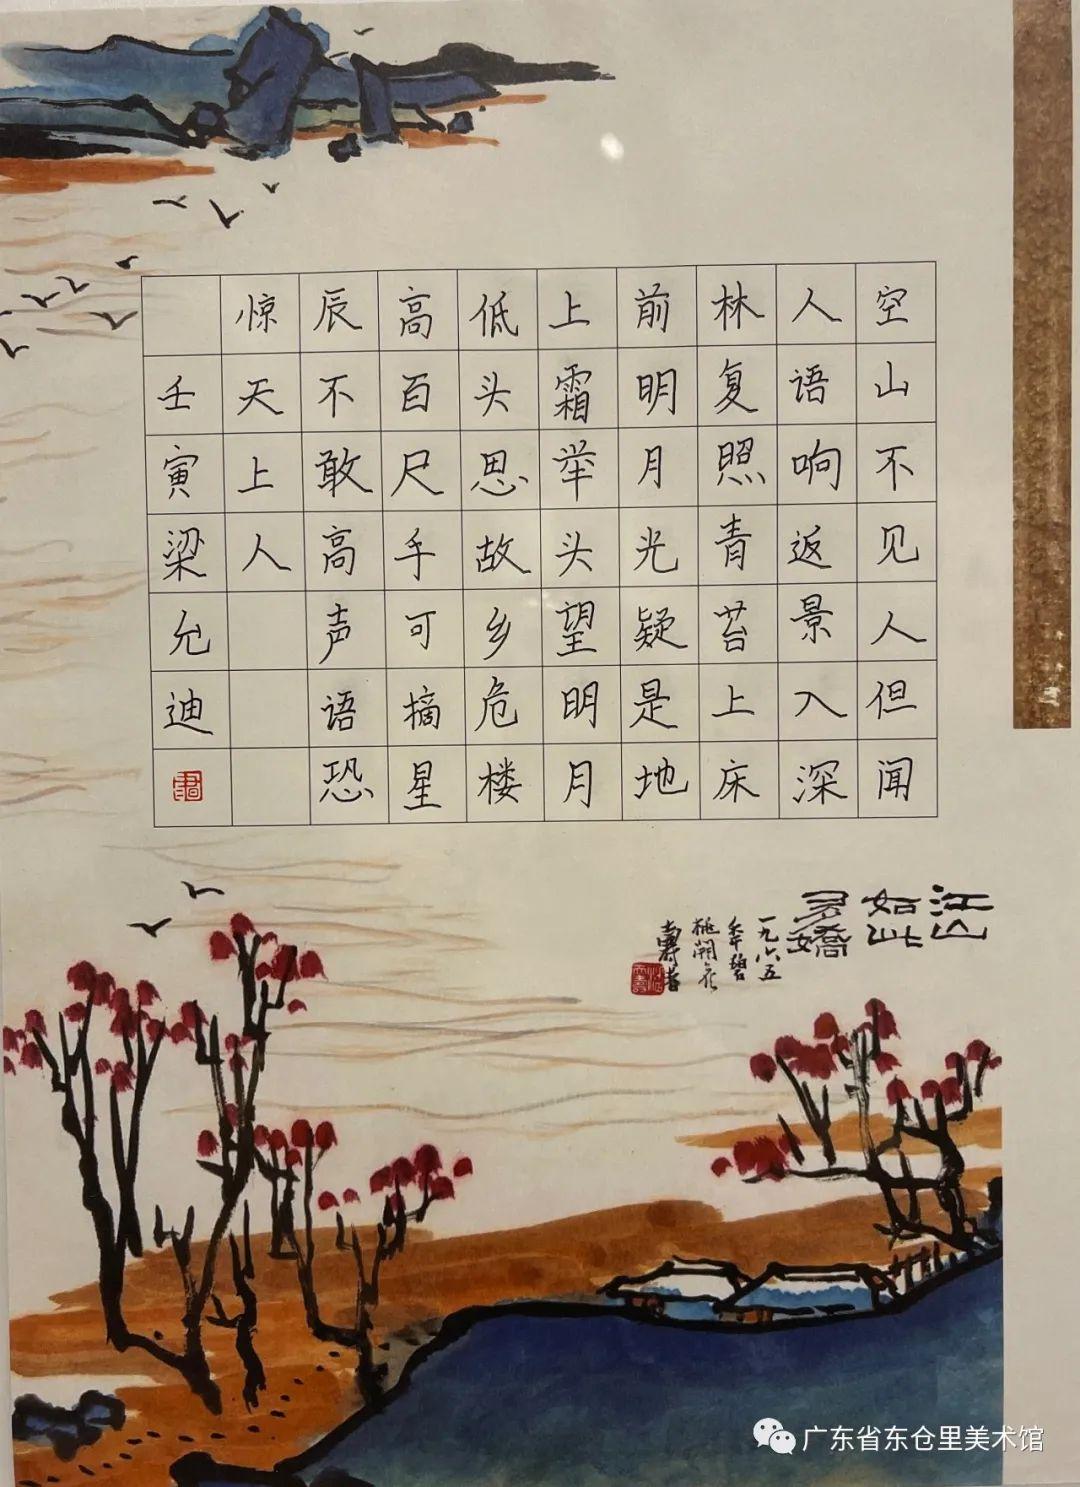 空山不见人但闻
人语响返景入深
林复照青苔上床
前明月光疑是地
上霜举头望明月
低头思故乡危楼
高百尺手可摘星
辰不敢高声语恐
惊天上人
壬寅梁允迪
書
江山
如此
多嬌
一九六五
年碧
桃開
广东省东仓里美术馆